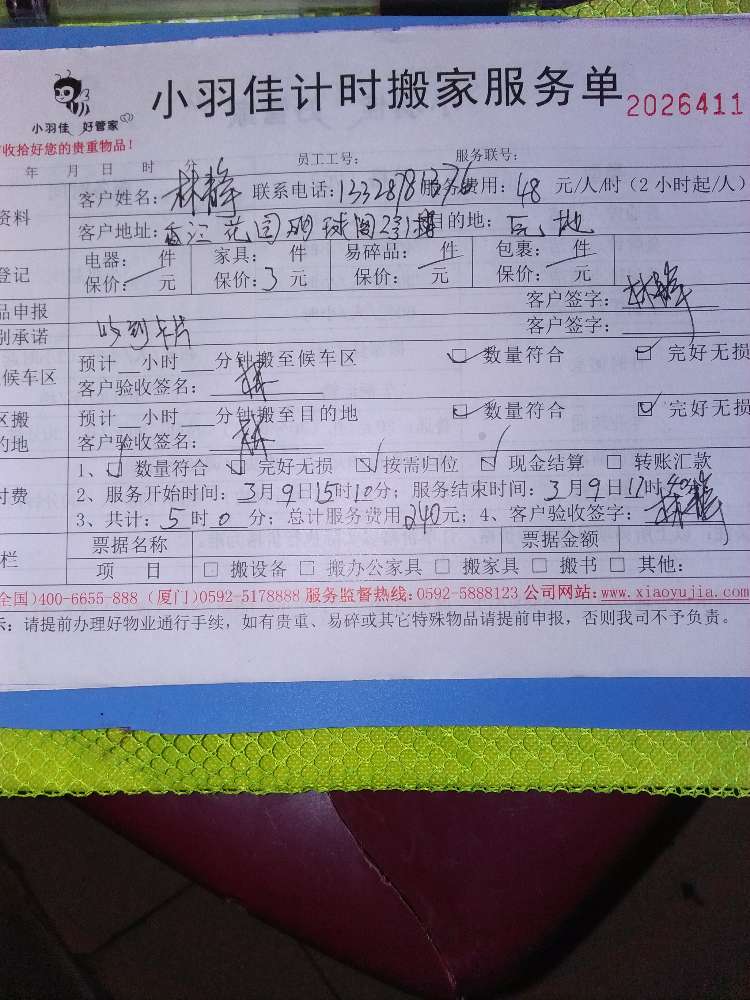 小羽佳计时搬家服务单 2026411
小羽佳 好管家
收拾好您的贵重物品！
年 月 日 时 分 员工工号： 服务联号：
资料 客户姓名：林静 联系电话： 服务费用：48 元/人/时（2小时起/人）
客户地址：香江花园 目的地：
登记 电器： 件 家具： 件 易碎品： 件 包裹： 件
保价： 元 保价：3 元 保价： 元 保价： 元
品申报 客户签字：林静
别承诺 收到卡片 客户签字：
候车区 预计 小时 分钟搬至候车区 数量符合 完好无损
客户验收签名：林
区搬 预计 小时 分钟搬至目的地 数量符合 完好无损
的地 客户验收签名：
付费 1、☑ 数量符合 ☑ 完好无损 ☑ 按需归位 ☑ 现金结算 □ 转账汇款
2、服务开始时间：3月9日15时10分；服务结束时间：3月9日17时40分
3、共计：5时0分；总计服务费用240元；4、客户验收签字：林静
栏 票据名称 票据金额
项 目 □ 搬设备 □ 搬办公家具 □ 搬家具 □ 搬书 □ 其他：
全国)400-6655-888 (厦门)0592-5178888 服务监督热线：0592-5888123 公司网站：www.xiaoyujia.com
示：请提前办理好物业通行手续，如有贵重、易碎或其它特殊物品请提前申报，否则我司不予负责。